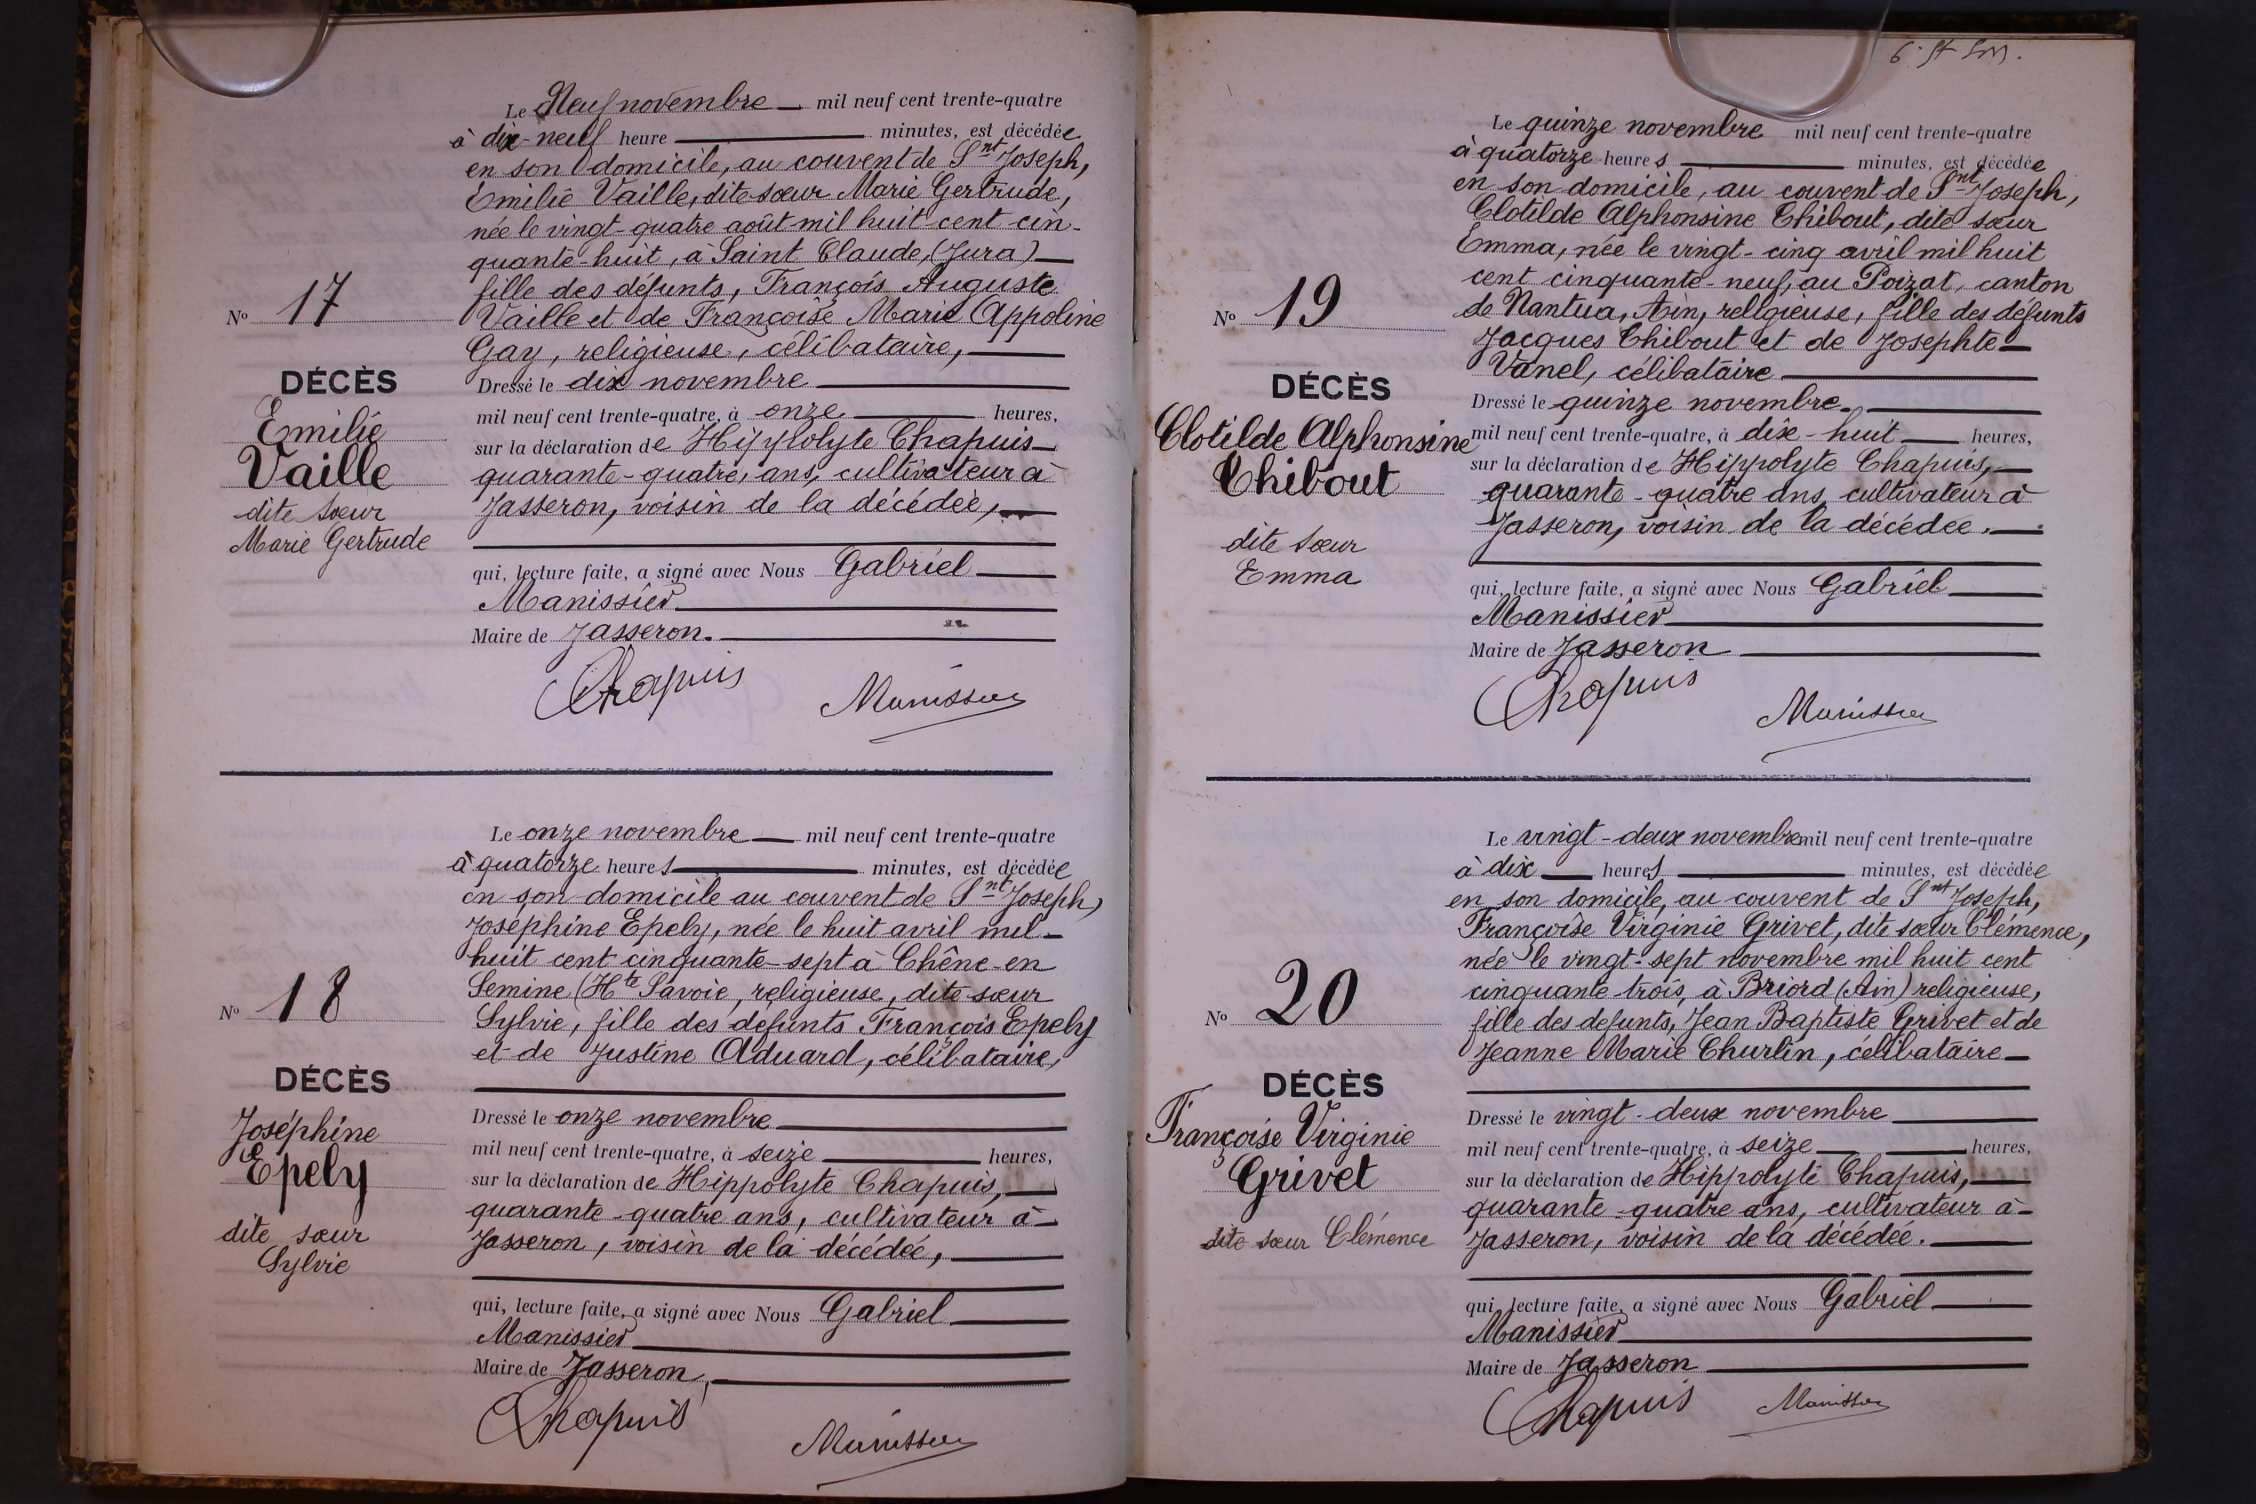 Le Neuf novembre mil neuf cent trente-quatre
à dix-neuf heure minutes, est décédée
en son domicile, au couvent de Snt Joseph,
Emilie Vaille, dite sœur Marie Gertrude,
née le vingt-quatre août mil huit cent cin-
quante-huit, à Saint Claude, (Jura)
fille des défunts, François Auguste
Vaille et de Françoise Marie Appoline
Gay, religieuse, célibataire,
Dressé le dix novembre
mil neuf cent trente-quatre, à onze heures,
sur la déclaration de Hippolyte Chapuis
quarante-quatre, ans, cultivateur à
Jasseron, voisin de la décédée,
qui, lecture faite, a signé avec Nous Gabriel
Manissier
Maire de Jasseron.
Chapuis Manissier
No 17
DÉCÈS
Emilie
Vaille
dite sœur
Marie Gertrude
Le onze novembre mil neuf cent trente-quatre
à quatorze heures minutes, est décédée
en son domicile au couvent de Snt Joseph,
Joséphine Epely, née le huit avril mil
huit cent cinquante-sept à Chêne-en
Semine (Hte Savoie, religieuse, dite sœur
Sylvie, fille des defunts François Epely
et de Justine Aduard, célibataire,
Dressé le onze novembre
mil neuf cent trente-quatre, à seize heures,
sur la déclaration de Hippolyte Chapuis,
quarante-quatre ans, cultivateur à
Jasseron, voisin de la décédée,
qui, lecture faite, a signé avec Nous Gabriel
Manissier
Maire de Jasseron,
Chapuis Manissier
No 18
DÉCÈS
Joséphine
Epely
dite sœur
Sylvie
Le quinze novembre mil neuf cent trente-quatre
à quatorze heures minutes, est décédée
en son domicile, au couvent de Snt Joseph,
Clotilde Alphonsine Thibout, dite sœur
Emma, née le vingt-cinq avril mil huit
cent cinquante-neuf, au Poizat, canton
de Nantua, Ain, religieuse, fille des défunts
Jacques Thibout et de Josephte
Vanel, célibataire
Dressé le quinze novembre.
mil neuf cent trente-quatre, à dix-huit heures,
sur la déclaration de Hippolyte Chapuis,
quarante-quatre ans, cultivateur à
Jasseron, voisin de la décédée.
qui, lecture faite, a signé avec Nous Gabriel
Manissier
Maire de Jasseron
Chapuis Manissier
No 19
DÉCÈS
Clotilde Alphonsine
Thibout
dite sœur
Emma
Le vingt-deux novembre mil neuf cent trente-quatre
à dix heures minutes, est décédée
en son domicile, au couvent de Snt Joseph,
Françoise Virginie Grivet, dite sœur Clémence,
née le vingt-sept novembre mil huit cent
cinquante trois, à Briord (Ain) religieuse,
fille des defunts, Jean Baptiste Grivet et de
Jeanne Marie Churlin, célibataire
Dressé le vingt-deux novembre
mil neuf cent trente-quatre, à seize heures,
sur la déclaration de Hippolyte Chapuis,
quarante-quatre ans, cultivateur à
Jasseron, voisin de la décédée.
qui, lecture faite, a signé avec Nous Gabriel
Manissier
Maire de Jasseron
Chapuis Manissier
No 20
DÉCÈS
Françoise Virginie
Grivet
dite sœur Clémence